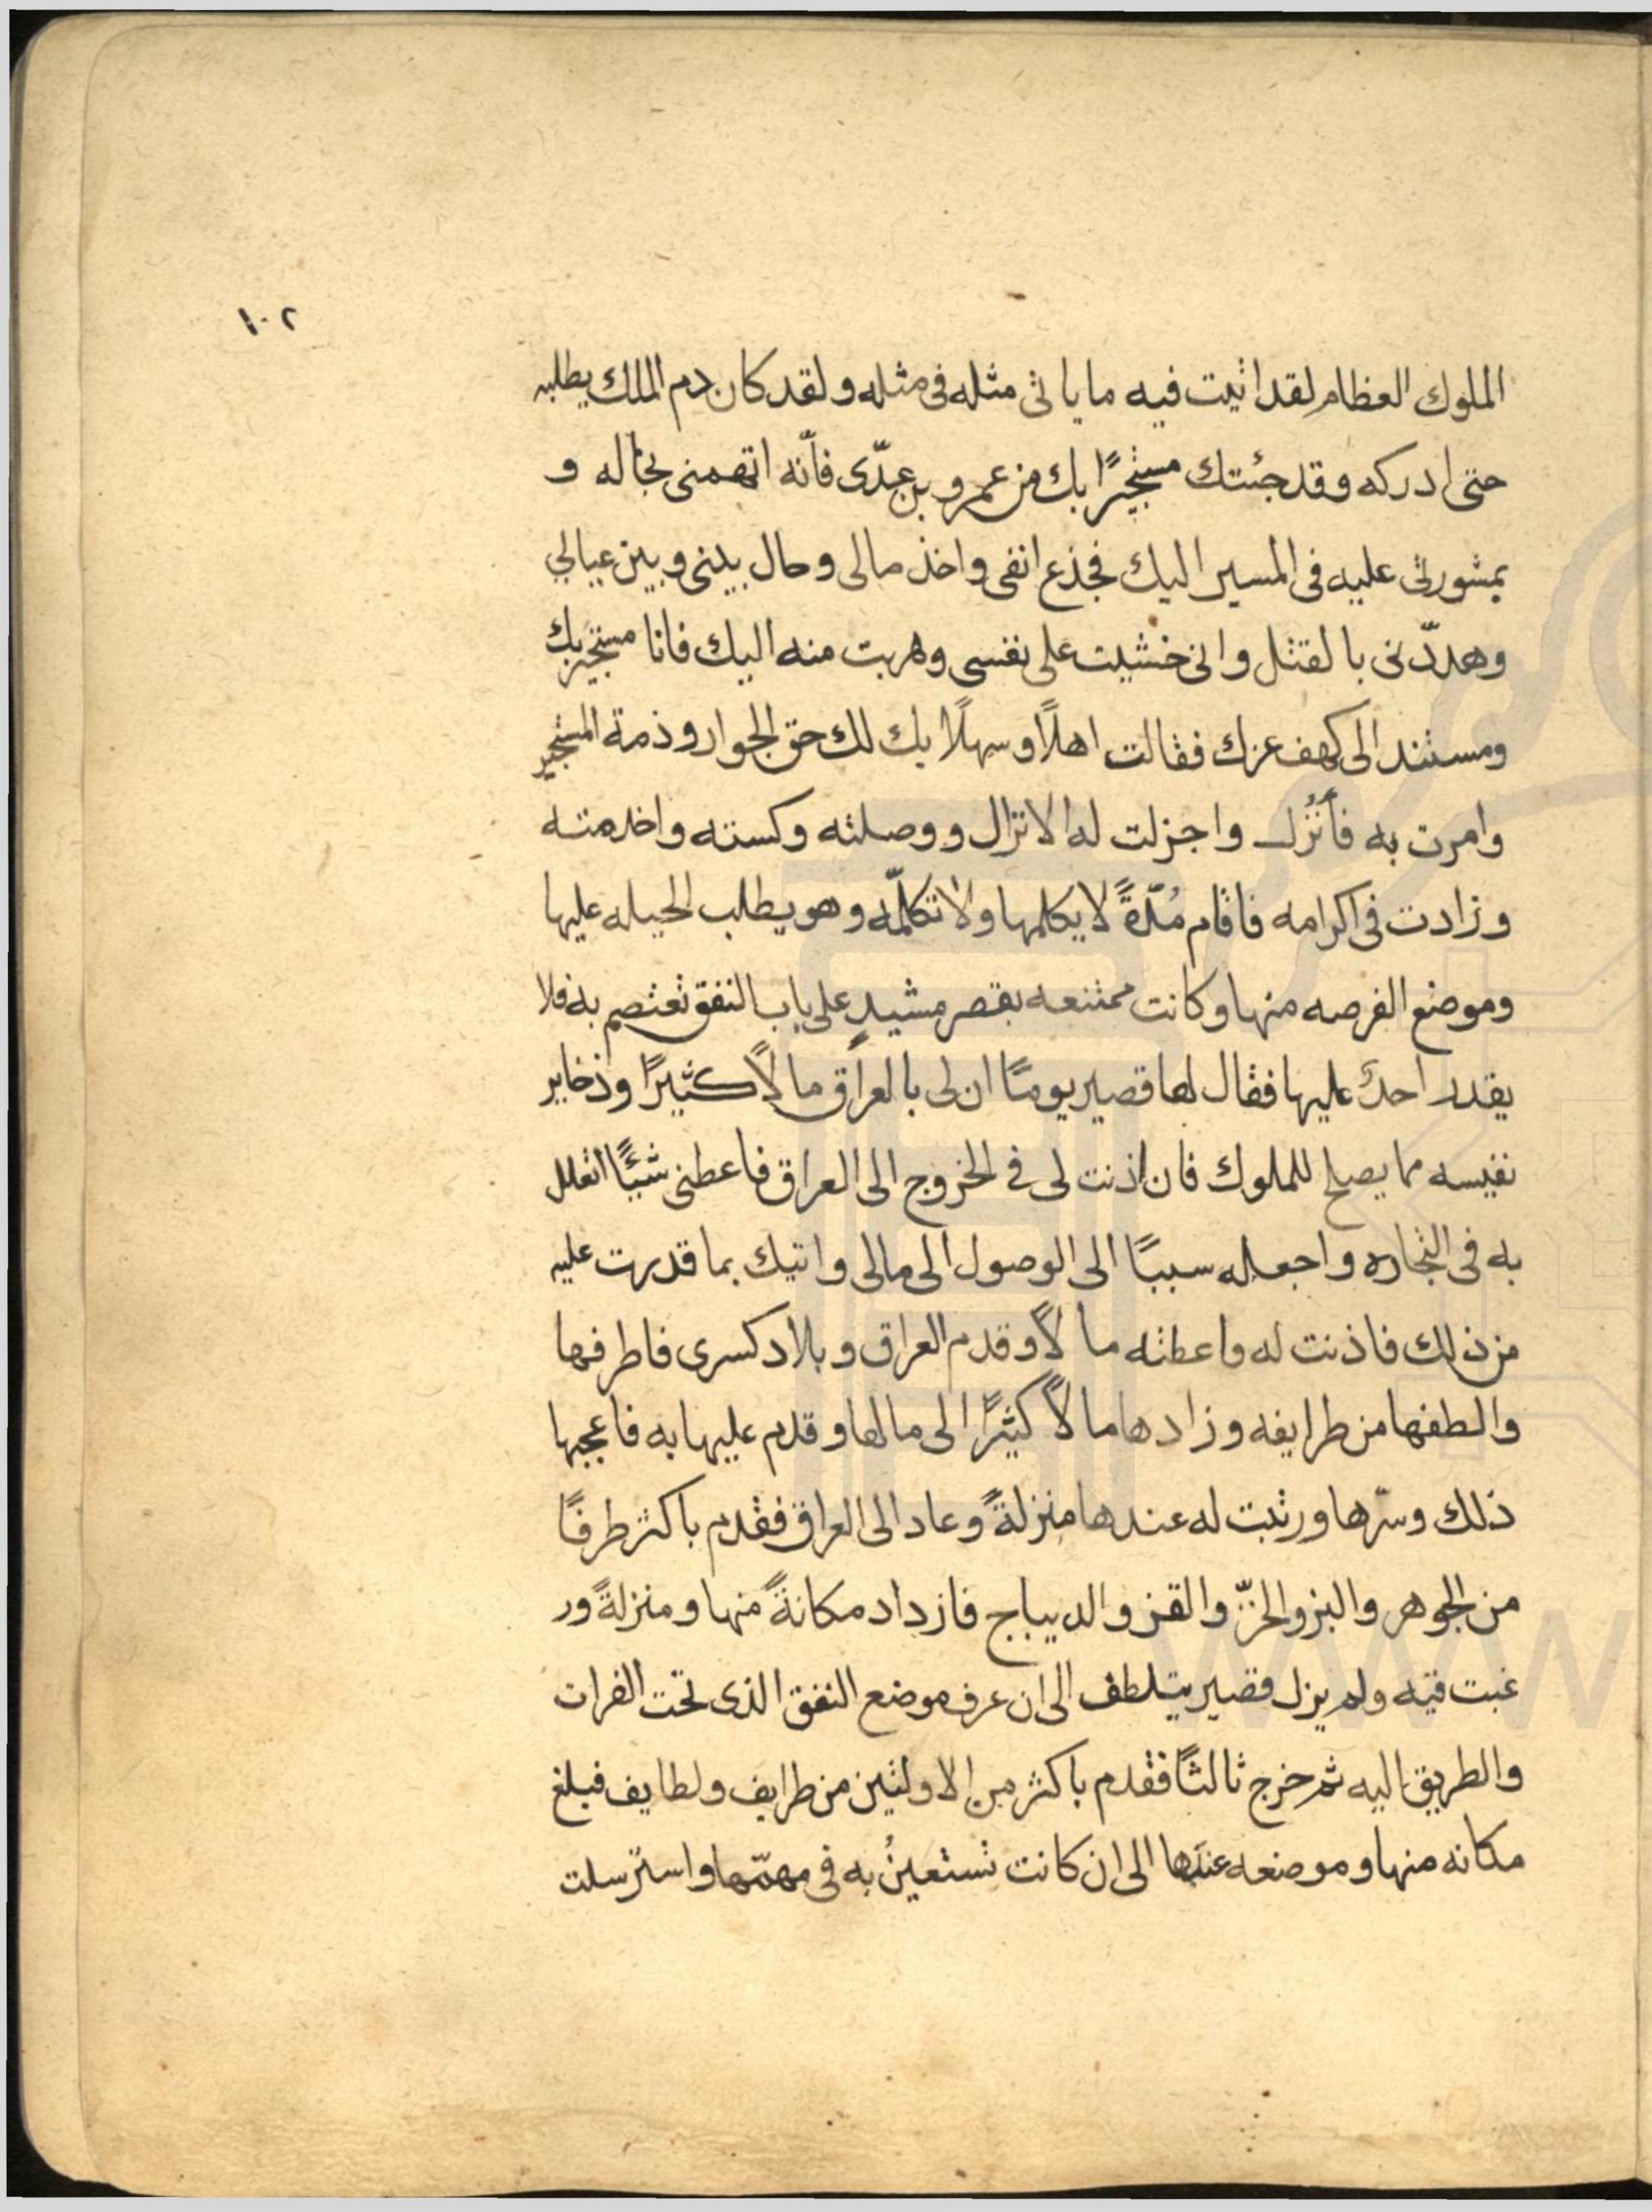 ١٠٢
الملوك العظام لقد اتيت فيه ما ياتى مثله فى مثله ولقد كان دم الملك يطلبه
حتى ادركه وقد جئتك مستجيرًا بك من عمرو بن عدّى فأنّه اتهمنى بخاله و
بمشورتى عليه فى المسير اليك فجذع انفى واخذ مالى وحال بينى وبين عيالي
وهدّدنى بالقتل وانى خشيت على نفسى وهربت منه اليك فانا مستجير بك
ومستند الى كهف عزك فقالت اهلًا وسهلًا بك لك حق الجوار وذمة المستجير
وامرت به فأُنْزل واجزلت له الانزال ووصلته وكسته واخدمته
وزادت فى اكرامه فاقام مُدّةً لا يكلمها ولا تكلّمه وهو يطلب الحيله عليها
وموضع الفرصه منها وكانت ممتنعه بقصر مشيدٍ على باب النفق تعتصم به فلا
يقدر احدٌ عليها فقال لها قصير يومًا ان لى بالعراق مالًا كثيرًا وذخاير
نفيسه مما يصلح للملوك فان اذنت لى فى الخروج الى العراق فاعطنى شيئًا اتعلل
به فى التجاره واجعله سببًا الى الوصول الى مالى واتيك بما قدرت عليه
من ذلك فاذنت له واعطته مالًا وقدم العراق وبلاد كسرى فاطرفها
والطفها من طرايفه وزادها مالًا كثيرًا الى مالها وقدم عليها به فاعجبها
ذلك وسرّها ورتبت له عندها منزلةً وعاد الى العراق فقدم باكثر طرفًا
من الجوهر والبز والخزّ والقز والديباج فازداد مكانةً منها ومنزلةً ور
غبت فيه ولم يزل قصير يتلطف الى ان عرف موضع النفق الذى تحت الفرات
والطريق اليه ثم خرج ثالثًا فقدم باكثر من الاولتين من طرايف ولطايف فبلغ
مكانه منها وموضعه عندها الى ان كانت تستعينُ به فى مهمّها واسترسلت